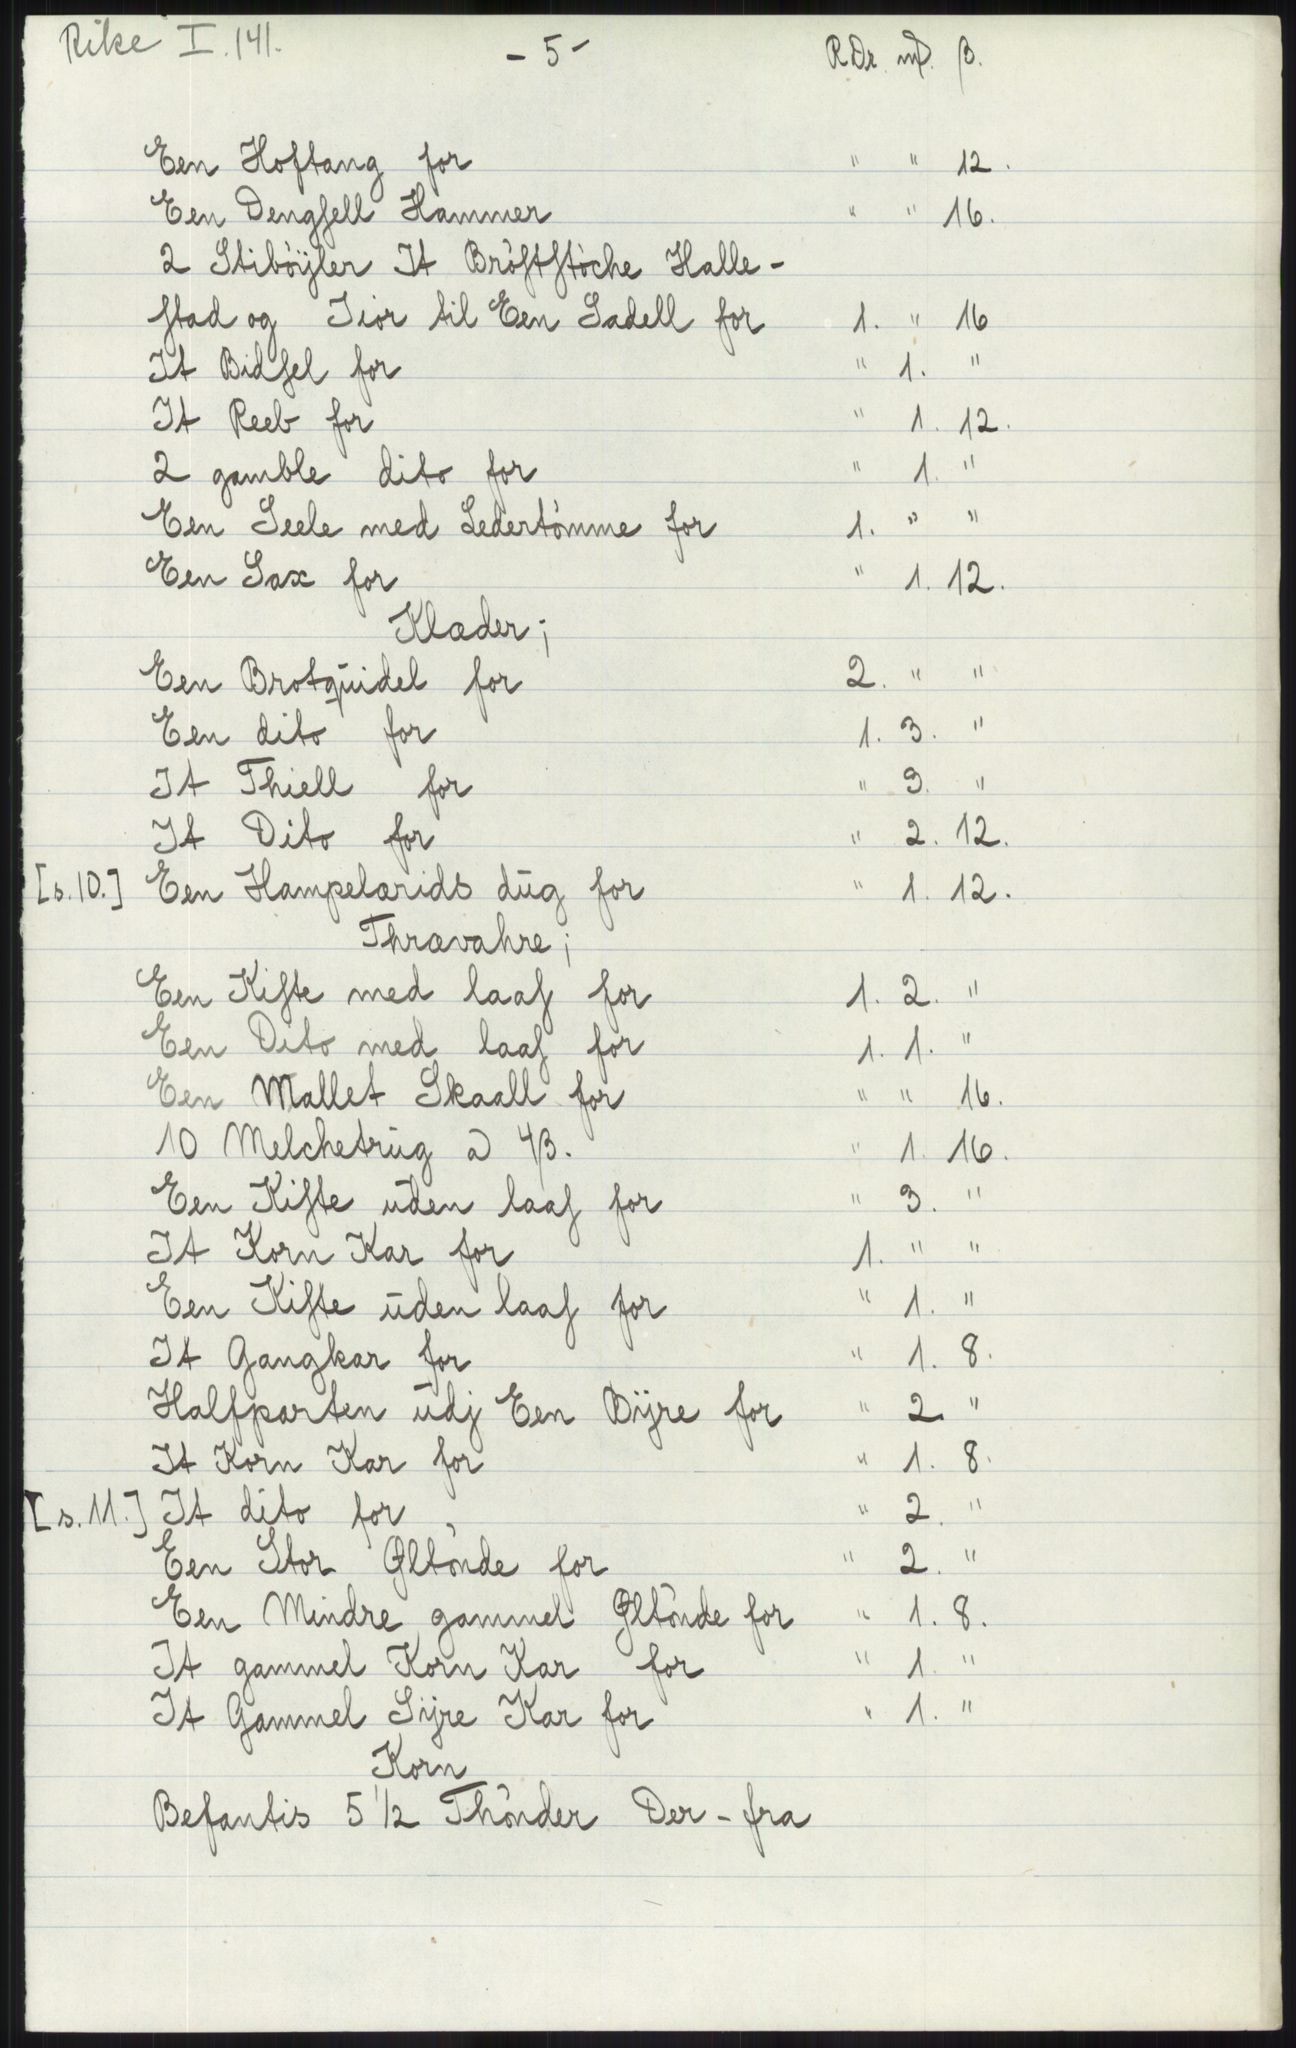 Rike I. 141.
- 5 - RDr. mþ. β.
Een Hoftang for " " 12.
Een Dengsell Hammer " " 16.
2 Stibòÿler It Bròststòche Halle-
stad og Jior til Een Sadell for 1. " 16
It Bidsel for " 1. "
It Reeb for " 1. 12.
2 gamble dito for " 1. "
Een Seele med Ledertòmme for 1. " "
Een Sax for " 1. 12.
Klæder;
Een Brotquidel for 2. " "
Een dito for 1. 3. "
It Thiell for " 3. "
It Dito for " 2. 12.
[s.10.] Een Hampelærids dūg for " 1. 12.
Thrævahre;
Een Kiste med laas for 1. 2. "
Een Dito med laas for 1. 1. "
Een Mallet Skaall for " " 16.
10 Melchetrūg a 4β. " 1. 16.
Een Kiste ūden laas for " 3. "
It Korn Kar for 1. " "
Een Kiste ūden laas for " 1. "
It Gangkar for " 1. 8.
Halfparten ūdj Een Bÿre for " 2 "
It Korn Kar for " 1. 8.
[s.11.] It dito for " 2. "
Een Stor Øltònde for " 2. "
Een Mindre gammel Øltònde for " 1. 8.
It gammel Korn Kar for " 1. "
It Gammel Sÿre Kar for " 1. "
Korn
Befantis 5 1/2 Thònder Der-fra